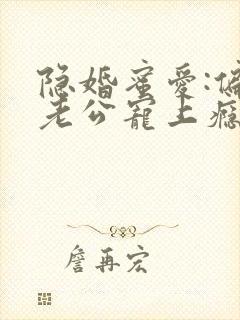 隐婚蜜爱:偏
老公宠上瘾
詹再宏